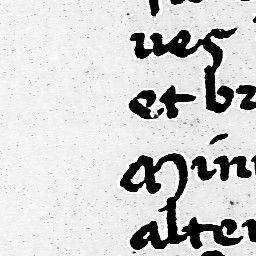 ues
et br
Min
alter